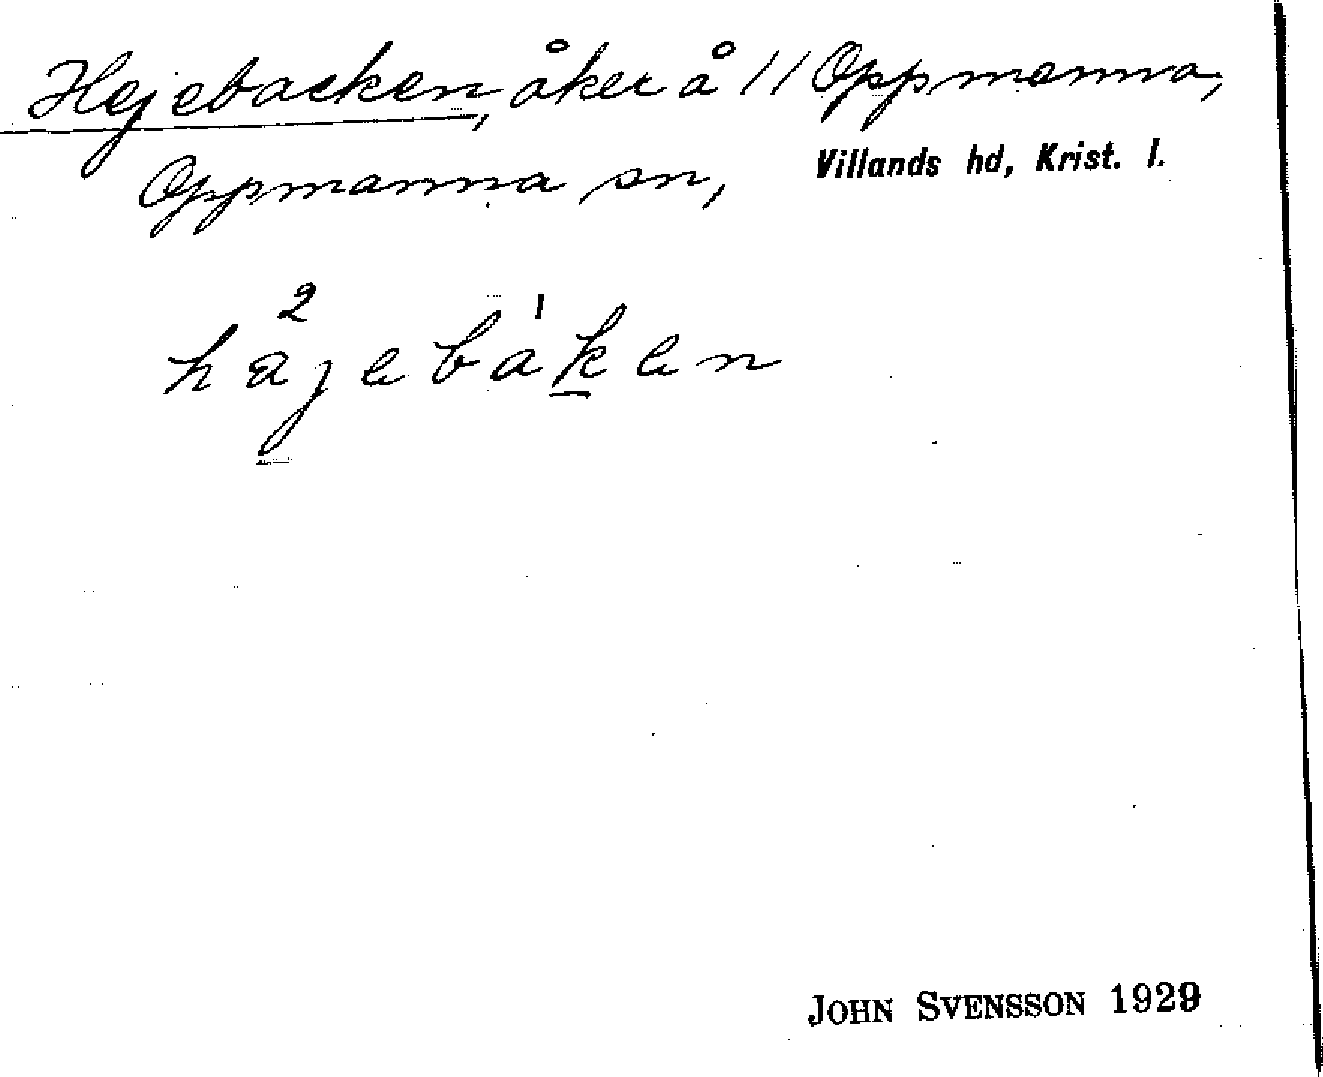 Hejebacken, åker å 11 Oppmanna,
Oppmanna sn, Villands hd, Krist. l.
JOHN SVENSSON 1929